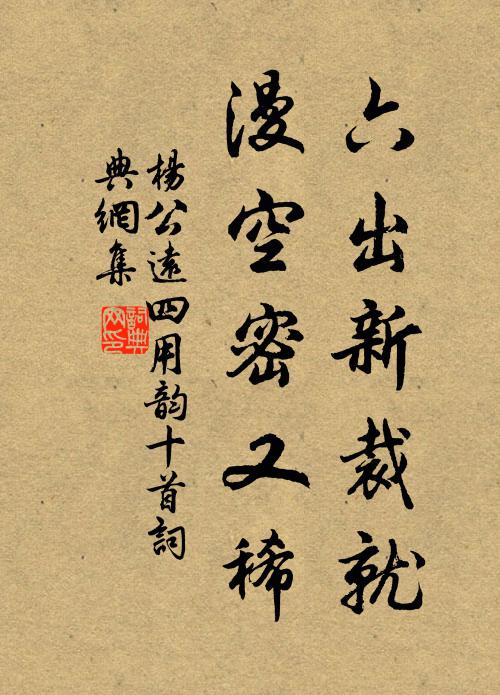 六出新裁就
漫空密又稀
楊公遠四用韵十首詞
典網集
詞典
网印